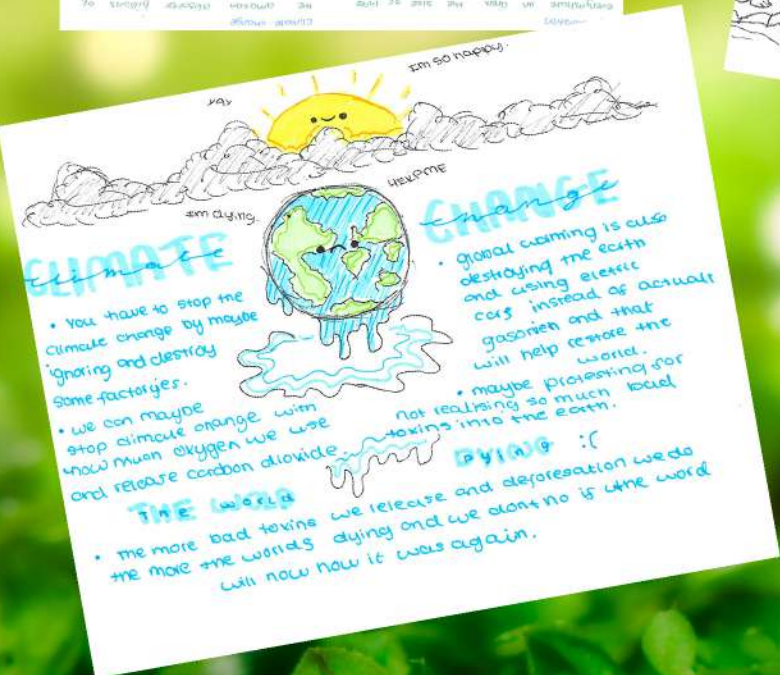 I'm so happy.
yay
HELP ME
I'm dying.
CLIMATE
climate
CHANGE
change
• You have to stop the
climate change by maybe
ignoring and destroy
some factoryies.
• we can maybe
stop climate change with
how much oxygen we use
and release carbon dioxide.
• global warming is also
destroying the earth
and using eletric
cars instead of actuals
gasorien and that
will help restore the
world.
• maybe protesting for
not realising so much bad
toxins into the earth.
THE WORLD
DYING :(
• The more bad toxins we release and deforesation we do
the more the worlds dying and we dont no if the word
will now how it was again.